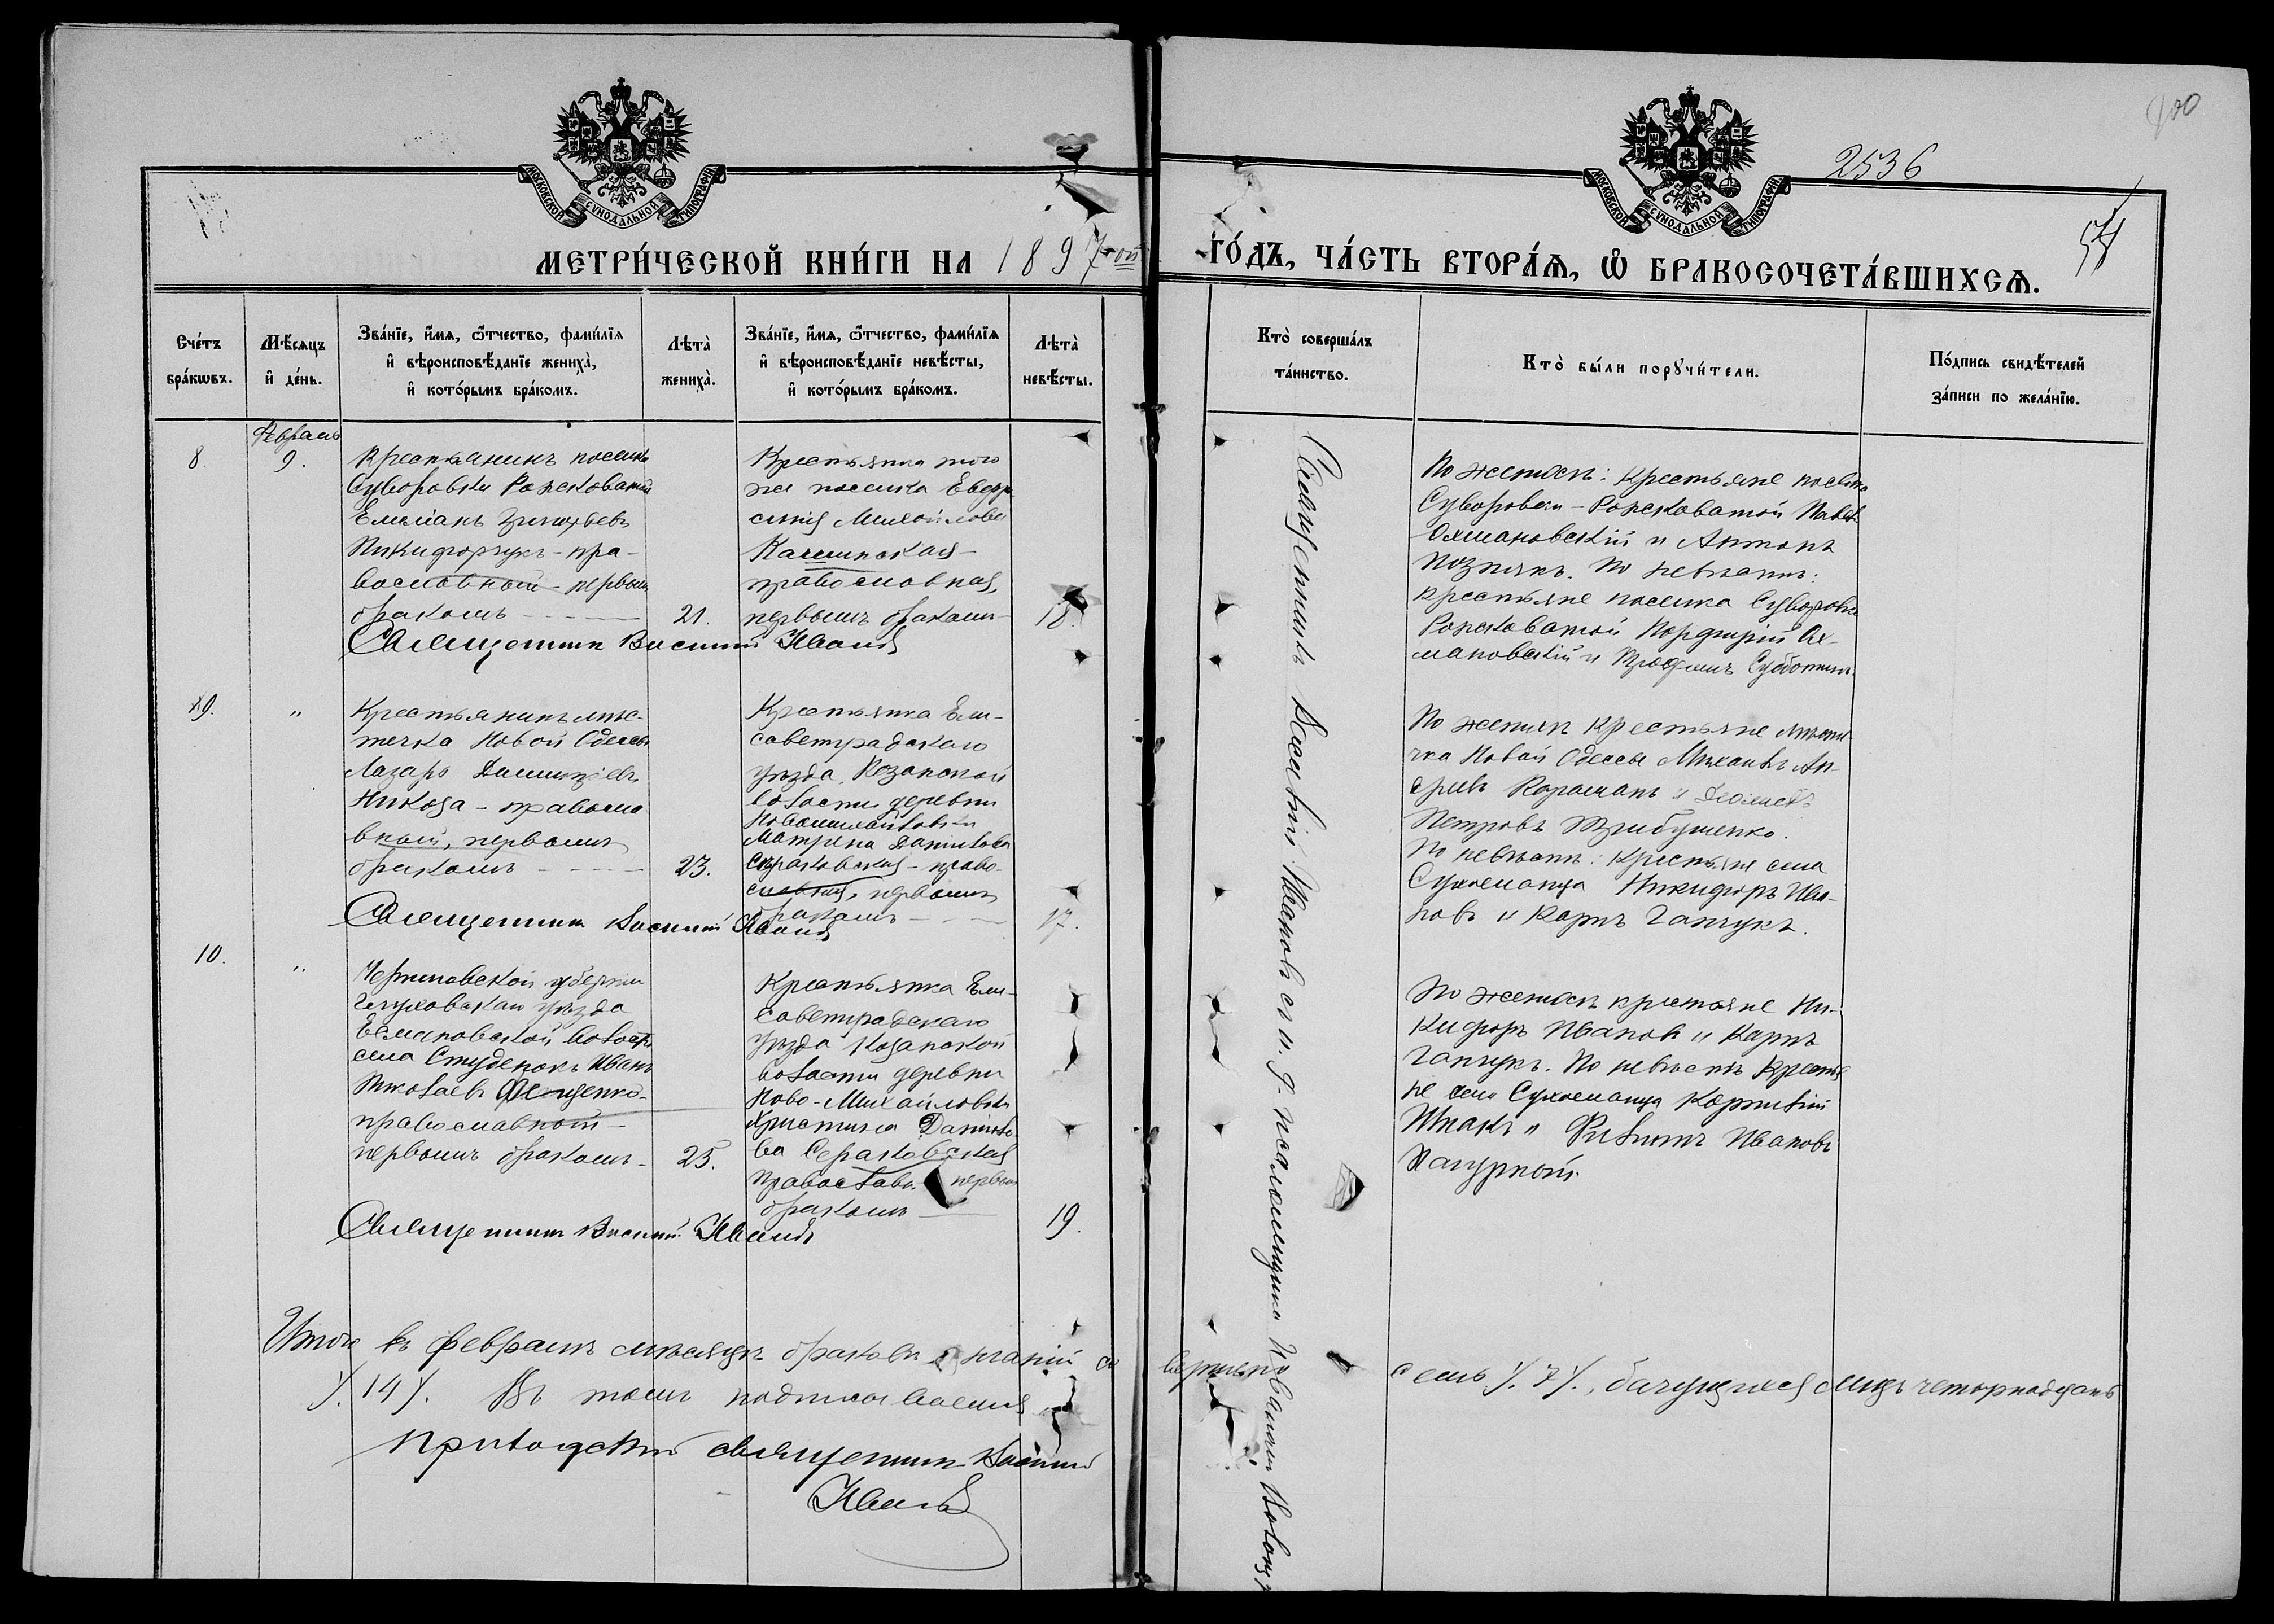 2536
МОСКОВСКОЙ СУНОДАЛЬНОЙ ТИПОГРАФІИ
МОСКОВСКОЙ СУНОДАЛЬНОЙ ТИПОГРАФІИ
МЕТРИ́ЧЕСКОЙ КНИ́ГИ НА 1897-ой
ГО́ДЪ, ЧА́СТЬ ВТОРА́Ѧ, Ѽ БРАКОСОЧЕТА́ВШИХСѦ.
Сче́тъ бра́кѡвъ.
Мѣ́сѧцъ и҆ де́нь.
Зва́нїе, и҆́мѧ, ѻ҆́тчество, фами́лїѧ
и҆ вѣроисповѣ́данїе жениха̀,
и҆ кото́рымъ бра́комъ.
Лѣта̀ жениха̀.
Зва́нїе, и҆́мѧ, ѻ҆́тчество, фами́лїѧ
и҆ вѣроисповѣ́данїе невѣ́сты,
и҆ кото́рымъ бра́комъ.
Лѣта̀ невѣ́сты.
Кто̀ соверша́лъ та́инство.
Кто̀ бы́ли порꙋчи́тели.
По́дпись свидѣ́телей за́писи по жела́нїю.
8.
Февраль
9.
Крестьянинъ поселка
Суворовки Рожковатой
Емельянъ
Никифорчукъ - пра-
вославный - первымъ
бракомъ
21.
Крестьянка того
же поселка Евфро
синія Михайлова
Калинская -
православная,
первымъ бракомъ
18.
Священникъ Василій Ивановъ
По женихѣ: крестьяне поселка
Суворовки - Рожковатой Павелъ
Охмановскій и Антонъ
Познякъ. По невѣстѣ:
крестьяне поселка Суворовки
Рожковатой Порфирій Ох-
мановскій и Трофимъ Субботинъ.
9.
"
Крестьянинъ мѣс-
течка Новой Одессы
Лазарь
Никоза - правосла
вный, первымъ
бракомъ
23.
Крестьянка Ели-
саветградскаго
уѣзда, Казанской
волости деревни
Новомихайловки
Матрена Данилова
Сераковская - право-
славная, первымъ
бракомъ
17.
Священникъ Василій Ивановъ
По женихѣ крестьяне мѣсте
чка Новой Одессы Михаилъ Ан-
Петровъ
По невѣстѣ: крестьяне села
Сухоеланца Никифоръ Ива-
новъ и Карпъ Ганчукъ.
10.
"
Черниговской губерніи
Глуховскаго уѣзда
Есмановской волости
села Студенокъ Иванъ
Николаевъ Фещенко -
православный -
первымъ бракомъ -
25.
Крестьянка Ели-
саветградскаго
уѣзда Казанской
волости деревни
Ново-Михайловки
Христина Данило
ва Сераковская
православн. первымъ
бракомъ
19.
Священникъ Василій Ивановъ
По женихѣ крестьяне Ни-
кифоръ Ивановъ и Карпъ
Ганчукъ. По невѣстѣ крестья
не села Сухоеланца Корнилій
Шпакъ и Филиппъ Ивановъ
Священникъ Василій Ивановъ съ и. д. псаломщика Иваномъ
Итого въ февралѣ мѣсяцѣ браковѣнчаній со
вершено семь /.7/., брачущихся лицъ четырнадцать
/.14/. Въ томъ подписываемся
Приходскій священникъ Василій
Ивановъ